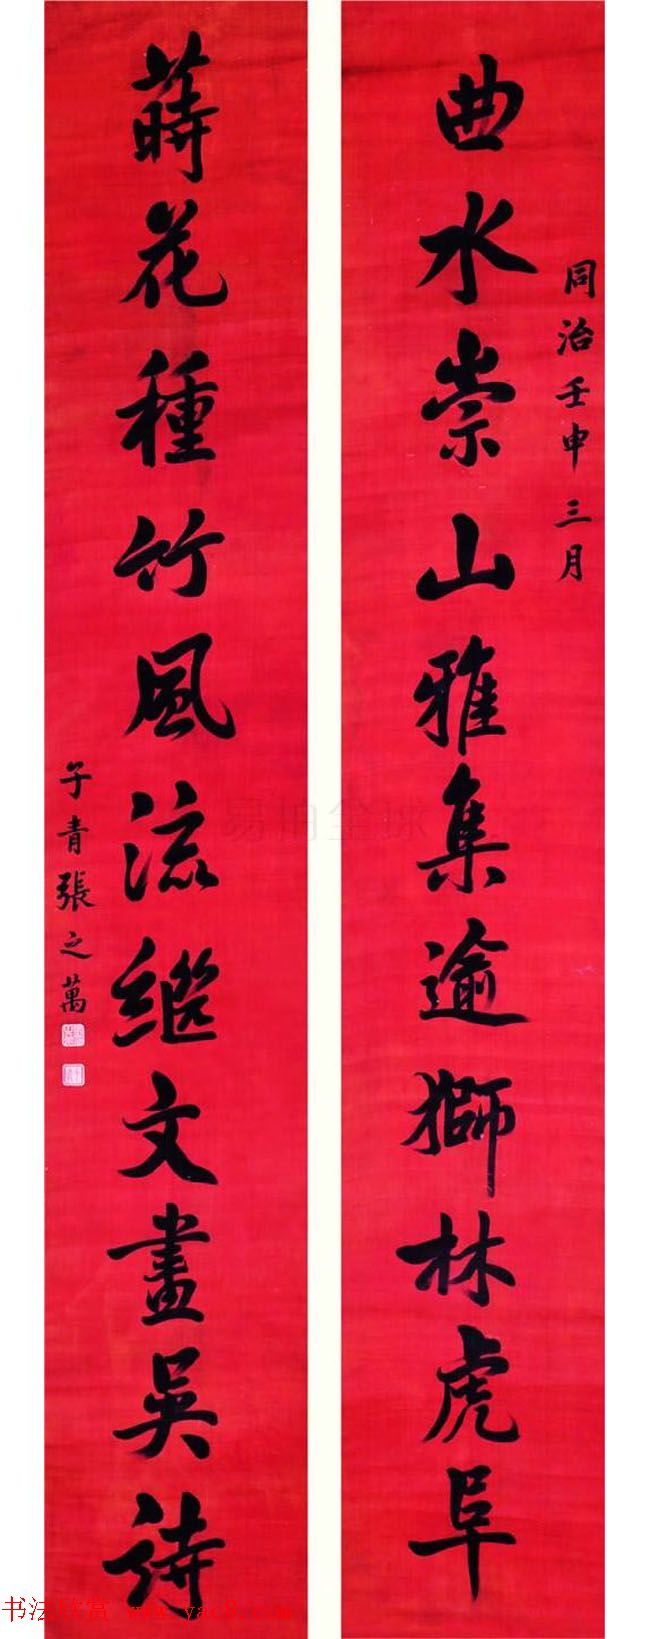 同治壬申三月
曲水崇山雅集逾獅林虎阜
蒔花種竹風流繼文畫吳詩
子青張之萬
易拍全球
书法欣赏 www.yac8.com